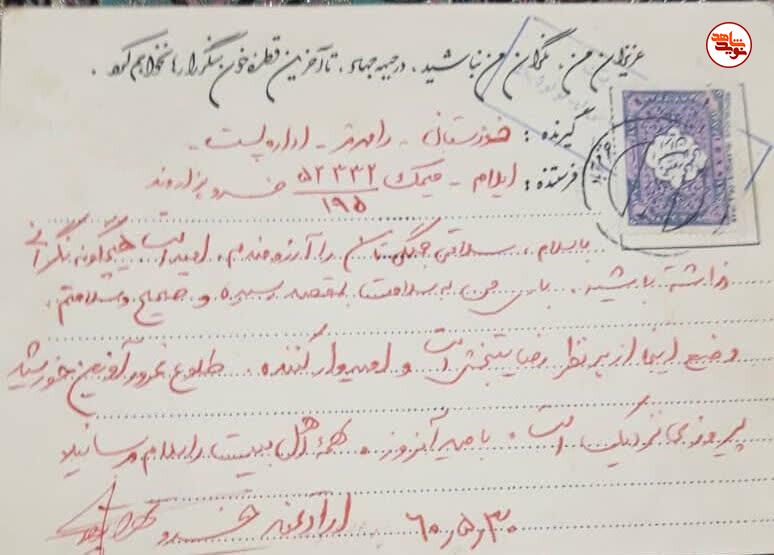 نوید شاهد
عزیزان من، نگران من نباشید، در جبهه جهاد، تا آخرین قطره خون سنگر را رها نخواهم کرد.
گیرنده: خوزستان - رامهرمز - اداره پست -
فرستنده: ایلام - میمک ۵۲۳۳۲ خسرو
۱۹۵
باسلام، سلامتی همگی تان را آرزومندم، امید است هیچگونه نگرانی
نداشته باشید. باری من به سلامت بمقصد رسیده و صحیح و سلامتم.
وضع اینجا از هر نظر رضایتبخش است و امیدوار کننده. طلوع غرور آفرین خورشید
پیروزی نزدیک است. بامید آنروز. همهٔ اهل بیت را سلام برسانید
ارادتمند خسرو
۶۰٫۵٫۳۰